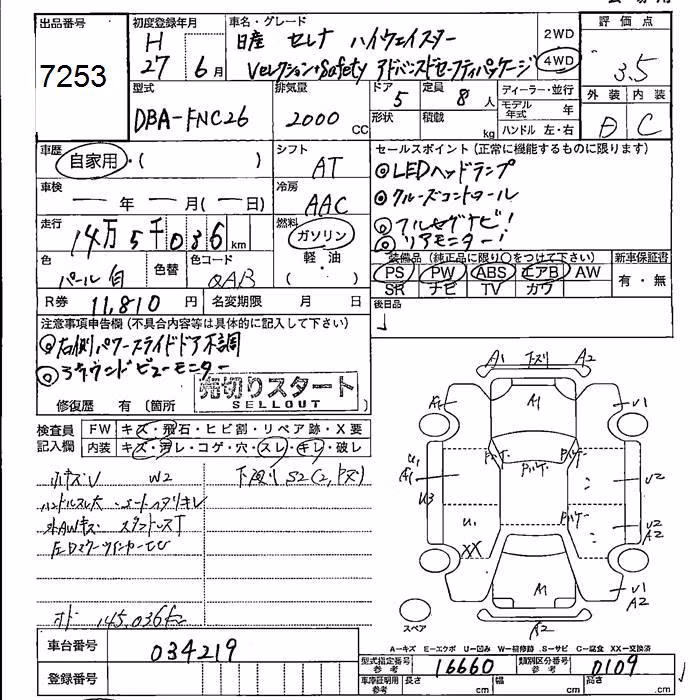 出品番号
7253
初度登録年月
H
27 6月
車名・グレード
日産 セレナ ハイウェイスター
Vセレクション+Safety アドバンスドセーフティパッケージ
2WD
4WD
評価点
3.5
外装 内装
B C
型式
DBA-FNC26
排気量
2000 CC
ドア 5
形状
定員 8人
積載 kg
ディーラー・並行
モデル年式 年
ハンドル 左・右
車歴
自家用・( )
シフト
AT
車検
年 月( 日)
冷房
AAC
走行
14万5千036km
燃料
ガソリン
軽・油
( )
色
パール白
色替
色コード
QAB
R券 11,810円
名変期限 月 日
セールスポイント(正常に機能するものに限ります)
◎LEDヘッドランプ
◎クルーズコントロール
◎フルセグナビ!
◎リアモニター!
装備品(純正品に限り○をつけて下さい)
PS PW ABS エアB AW
SR ナビ TV カワ
新車保証書
有・無
後日品
注意事項申告欄(不具合内容等は具体的に記入して下さい)
◎右側パワースライドドア不調
◎アラウンドビューモニター
売切りスタート
SELLOUT
修復歴 有(箇所
検査員記入欄
FW キズ・飛石・ヒビ割・リペア跡・X要
内装 キズ・汚レ・コゲ・穴・スレ・キレ・破レ
小キズU W2
下廻りS2
ハンドルスレ大 シートヘタリキレ
外AWキズ スタッドレスT
左Dミラーウインカー
オド 145,036km
A1 下スリ A2
A1
A1
U1
A1
U3
U1
XX
U1
U2
U2
A2
U1
A2
Pバケ
Pバケ
Pバケ
Pバケ
A1
A2
スペア
A…キズ E…エクボ U…凹み W…補修跡 S…サビ C…腐食 XX…交換済
車台番号
034219
登録番号
型式指定番号
参考
16660
類別区分番号
参考
0109
車庫証明用
参考
長さ cm
幅 cm
高さ cm